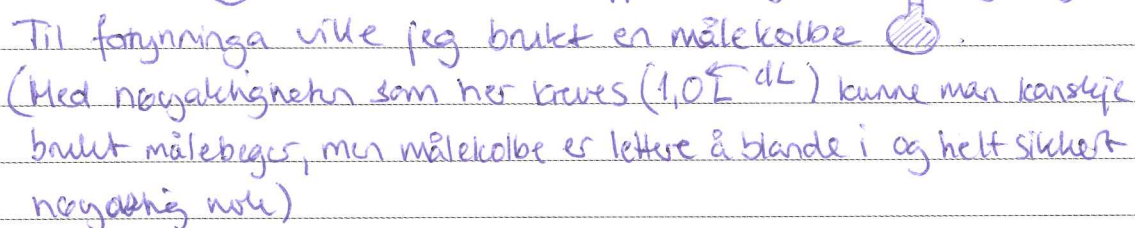 Til fortynninga ville jeg brukt en målekolbe.
(Med nøyaktigheten som her kreves (1,0 dL) kunne man kanskje
brukt målebeger, men målekolbe er lettere å blande i og helt sikkert
nøyaktig nok)